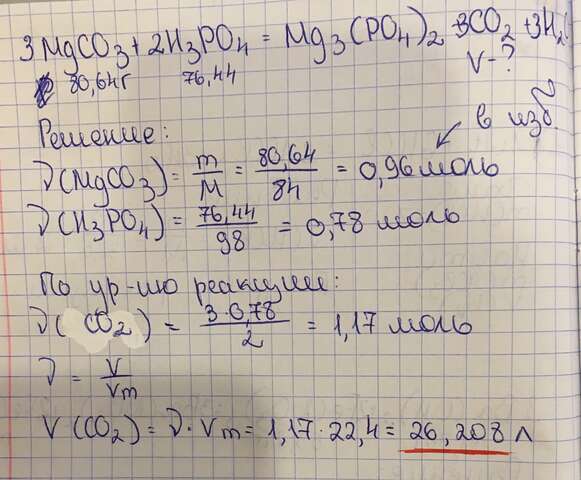 3MgCO₃ + 2H₃PO₄ = Mg₃(PO₄)₂ + 3CO₂ + 3H₂
80,64г 76,44 V-?
Решение: в изб.
ν(MgCO₃) = m/M = 80,64/84 = 0,96 моль
ν(H₃PO₄) = 76,44/98 = 0,78 моль
По ур-ию реакции:
ν(CO₂) = 3·0,78/2 = 1,17 моль
ν = V/Vm
V(CO₂) = ν·Vm = 1,17·22,4 = 26,208 л